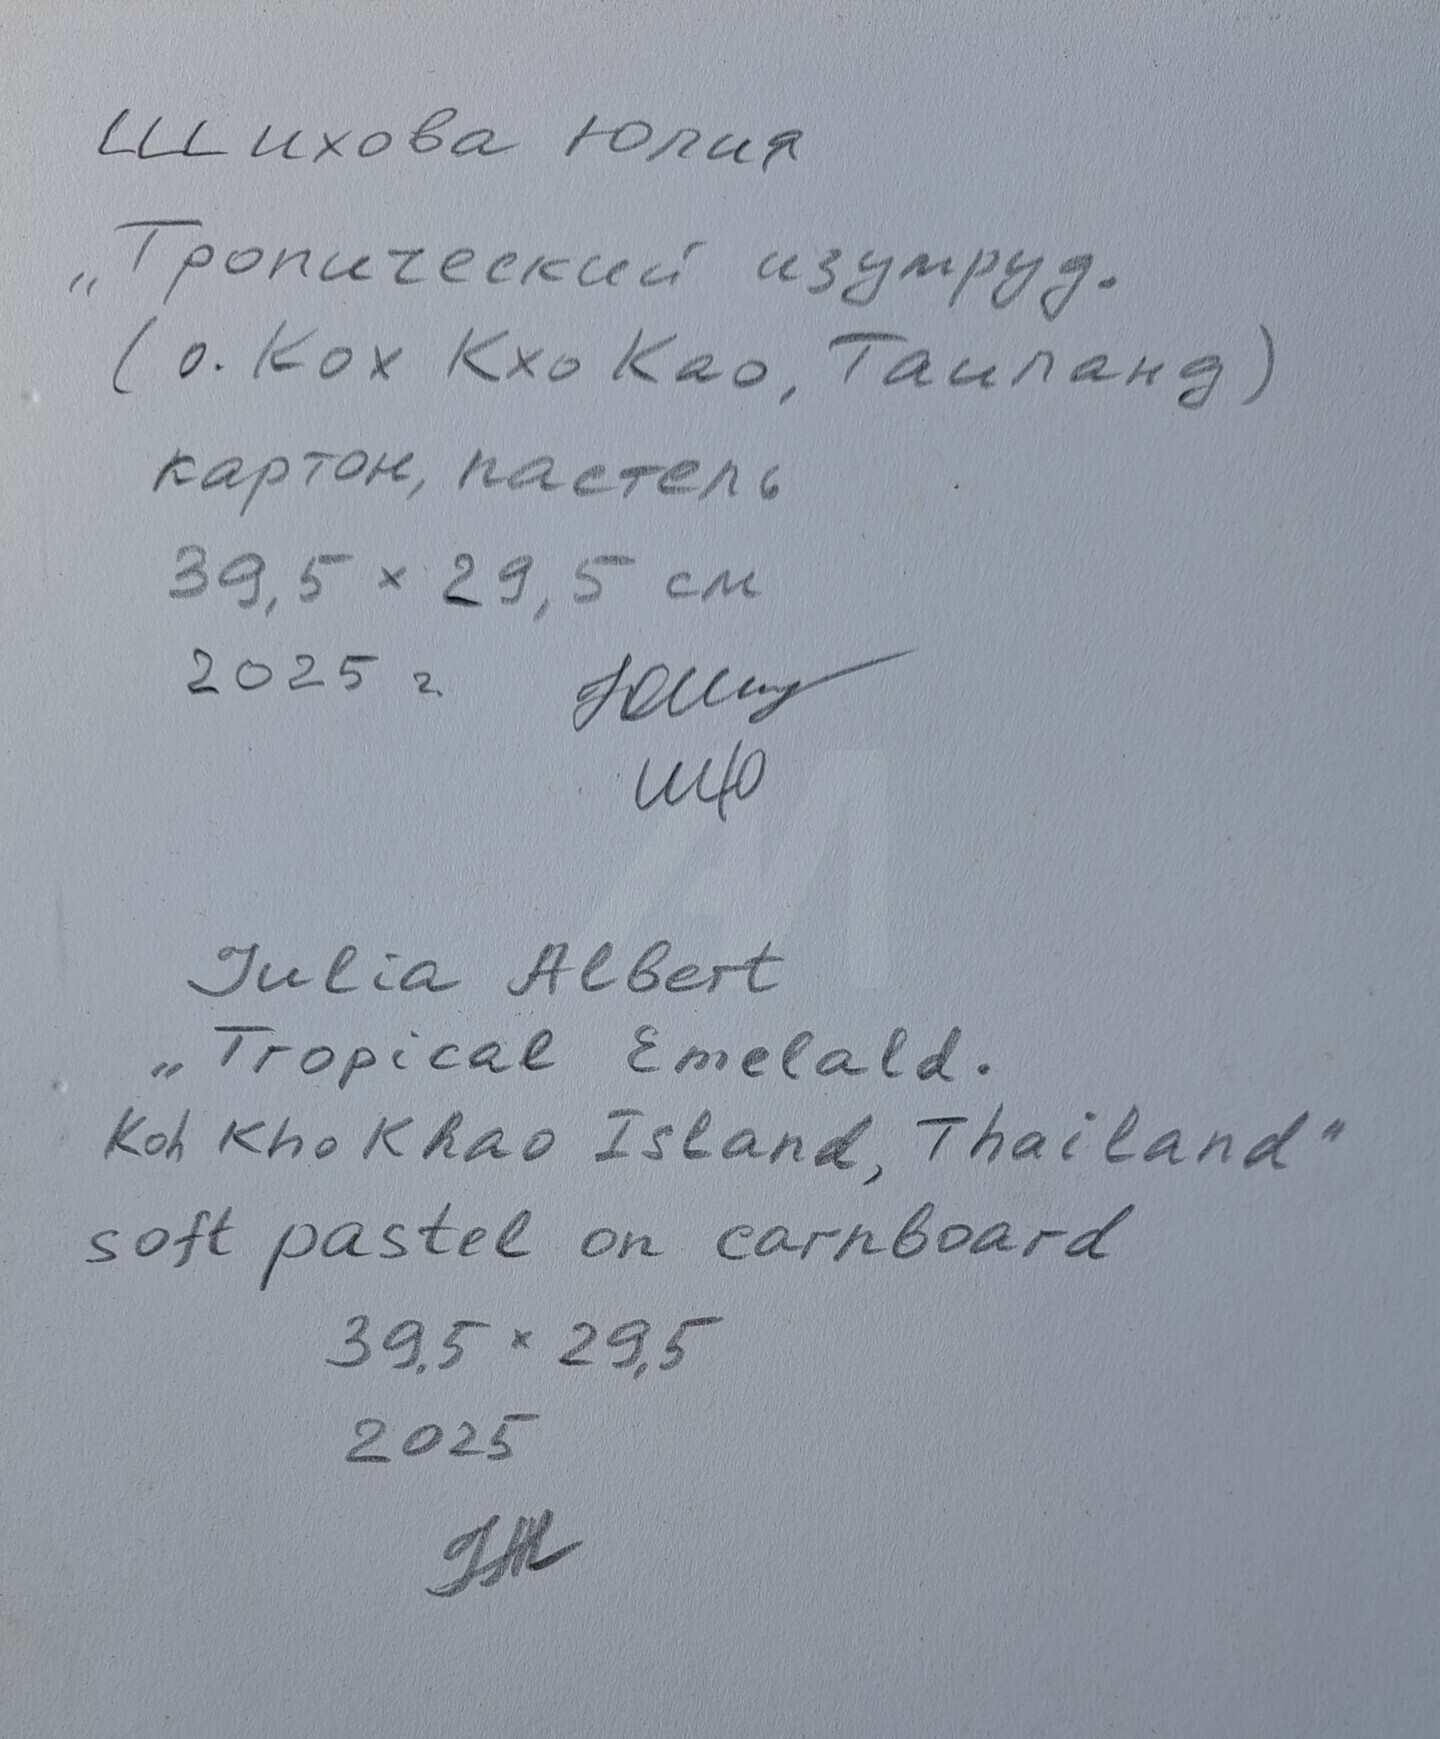 Шихова Юлия
„Тропический изумруд.
(о. Кох Кхо Као, Таиланд)
картон, пастель
39,5 × 29,5 см
2025 г.
ШЮ
Julia Albert
„Tropical Emelald.
Koh Kho Khao Island, Thailand"
soft pastel on carnboard
39,5 × 29,5
2025